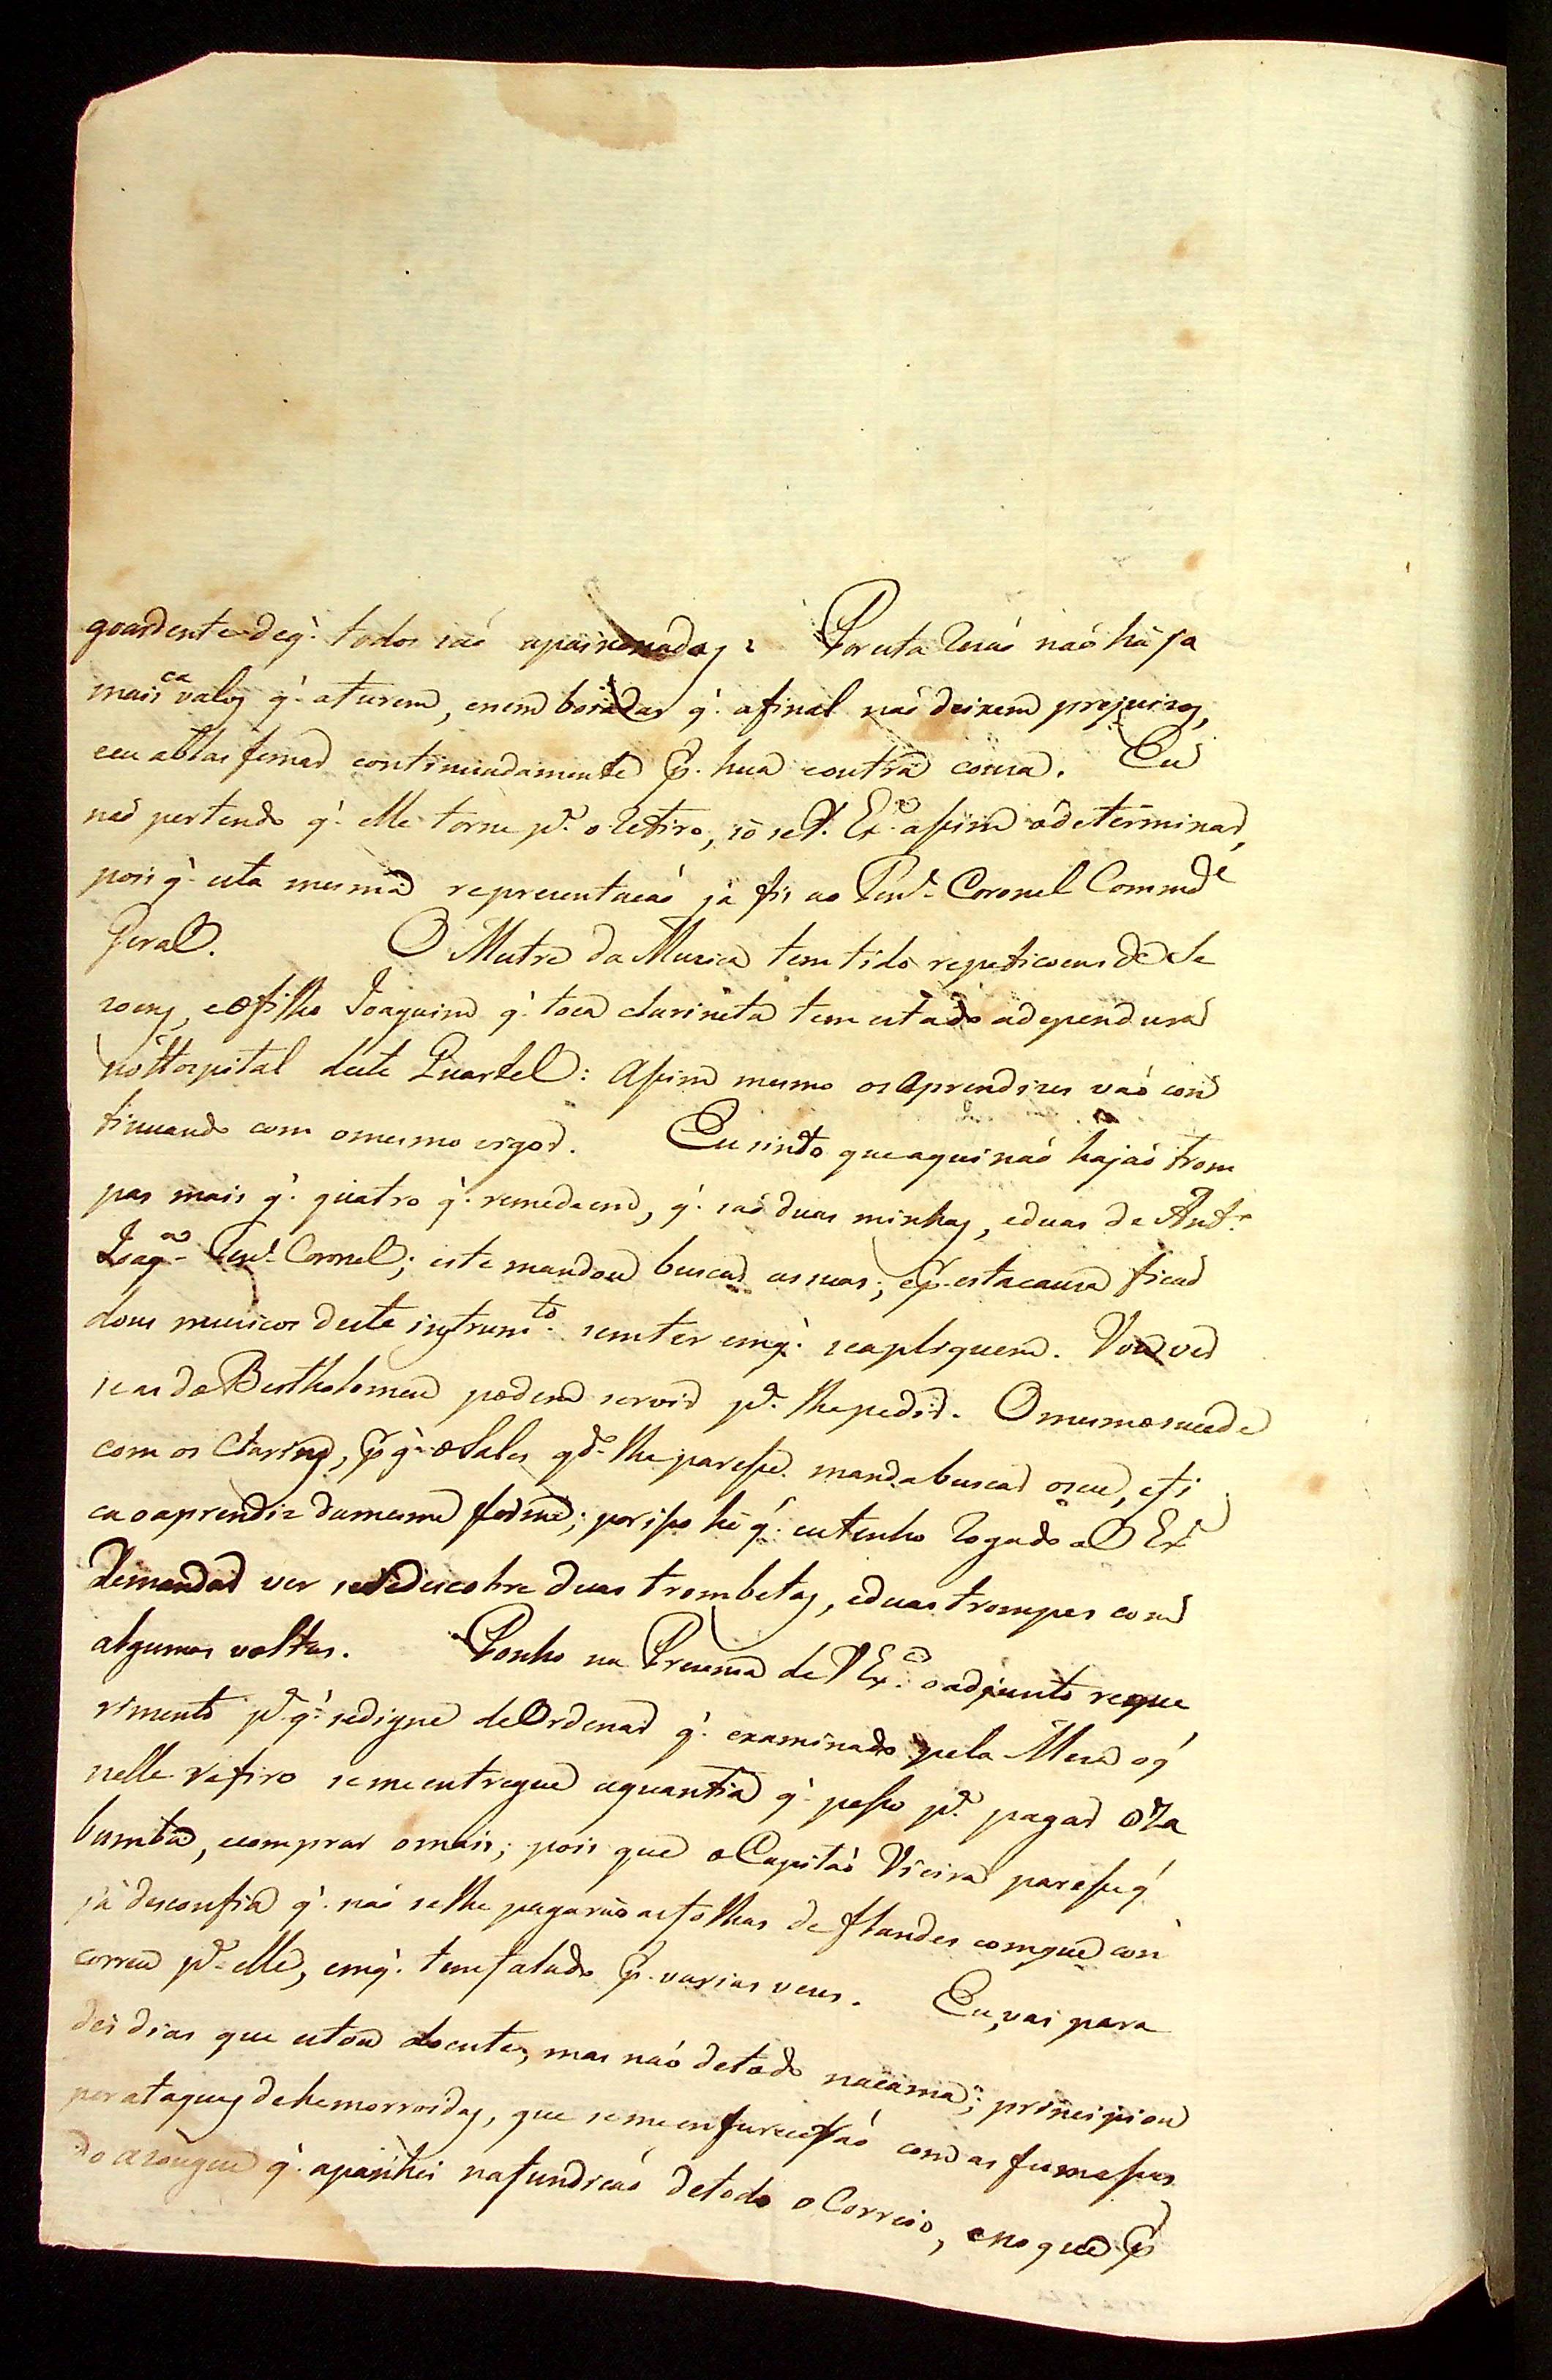 goardente deq̃. todos saó apaixonados: Poresta Rasaó naó há já
mais cavalos q̃. aturem, enem boiadas q̃. afinal naó deixem prejuizos,
eeu ablasfemar continuadamente p̃. hua eoutra cousa. Eu
naó pertendo q̃. elle torne pª. o Retiro, só seV. Exª. assim odeterminar,
pois q̃. esta mesma representacaó já fis ao Tenᵉ. Coronel Commdᵉ
Geral. O Mestre da Musica tem tido repeticoens de Se
zoens, eofilho Joaquim q̃. toca clarineta tem estado adependura
noHospital deste Quartel: Assim mesmo os Aprendizes vaó con
tinuando com omesmo vigor. Eu sinto queaqui naó hajaó trom
pas mais q̃. quatro q̃. remedeem, q̃. saó duas minhas, eduas de Antº
Joaqᵐ Tenᵉ. Coronel; este mandou buscar assuas; ep̃. estacausa ficaó
dous musicos deste instrumᵗᵒ. semter emq̃. seapliquem. Vou ver
seasdoBertholomeu podem servir pª. lhepedir. Omesmosucede
com os Clarins, p̃q̃. oSales qdº. lhe paresse mandabuscar oseu, efi
ca oaprendiz damesma forma; porisso hé q̃. eutenho Rogado aV Exª
demandar ver sesedescobre duas trombetas, eduas trompas com
algumas voltas. Ponho na Presensa de V Exª. oadjunto reque
rimento pª. q̃. sedigne deOrdenar q̃. examinado pela Mesa oq̃
nelle refiro semeentregue aquantia q̃. pesso pª. pagar oZa
bumba, ecomprar omais; pois que oCapitaó Vieira paresseq̃
já desconfia q̃. naó selhe pagaraó asfolhas deflandes comque con
correu pª. elle, emq̃. temfalado p̃. varias veses. Eu, vai para
des dias que estou doente, mas naó detodo nacama; principiou
porataques dehemorroidas, que semeenfurecessaó com as fumassas
do asougue q̃. apanhei nafundicaó detodo o Correio, eno que p̃